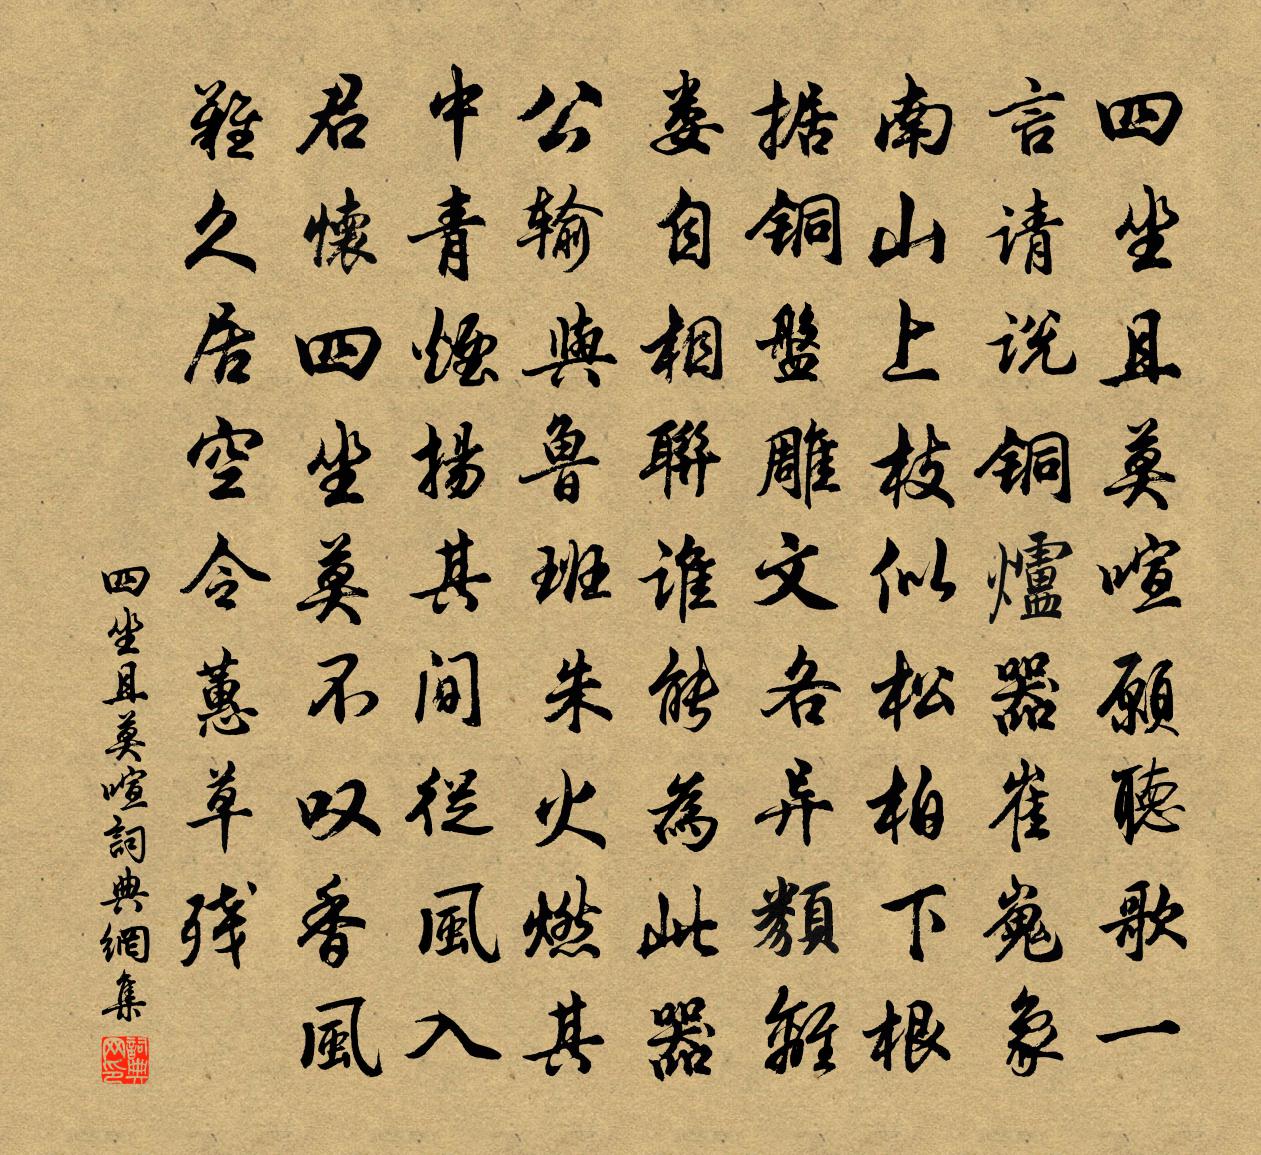 四坐且莫喧願聽歌一
言请说铜爐器崔嵬象
南山上枝似松柏下根
据铜盤雕文各异類離
娄自相聯谁能為此器
公输與鲁班朱火燃其
中青煙揚其间從風入
君懷四坐莫不叹香風
難久居空令蕙草残
四坐且莫喧詞典網集
詞典网印